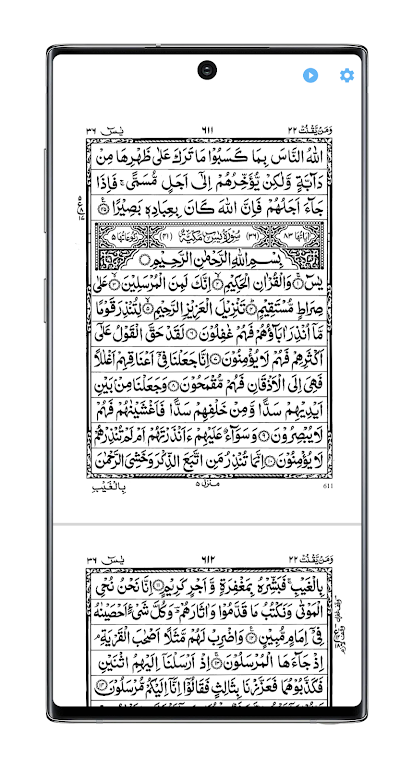 وَمَن يَّقْنُتْ ٢٢
٦١١
يٰسٓ ٣٦
اللّٰهُ النَّاسَ بِمَا كَسَبُوْا مَا تَرَكَ عَلٰى ظَهْرِهَا مِنْ
دَآبَّةٍ وَّلٰكِنْ يُّؤَخِّرُهُمْ اِلٰٓى اَجَلٍ مُّسَمًّى ۚ فَاِذَا
جَآءَ اَجَلُهُمْ فَاِنَّ اللّٰهَ كَانَ بِعِبَادِهٖ بَصِيْرًا ﴿٤٥﴾
اٰيَاتُهَا ٨٣ (٣٦) سُوْرَةُ يٰسٓ مَكِّيَّةٌ (٤١) رُكُوْعَاتُهَا ٥
بِسْمِ اللّٰهِ الرَّحْمٰنِ الرَّحِيْمِ
يٰسٓ ﴿١﴾ وَالْقُرْاٰنِ الْحَكِيْمِ ﴿٢﴾ اِنَّكَ لَمِنَ الْمُرْسَلِيْنَ ﴿٣﴾ عَلٰى
صِرَاطٍ مُّسْتَقِيْمٍ ﴿٤﴾ تَنْزِيْلَ الْعَزِيْزِ الرَّحِيْمِ ﴿٥﴾ لِتُنْذِرَ قَوْمًا
مَّآ اُنْذِرَ اٰبَآؤُهُمْ فَهُمْ غٰفِلُوْنَ ﴿٦﴾ لَقَدْ حَقَّ الْقَوْلُ عَلٰٓى
اَكْثَرِهِمْ فَهُمْ لَا يُؤْمِنُوْنَ ﴿٧﴾ اِنَّا جَعَلْنَا فِيْٓ اَعْنَاقِهِمْ اَغْلٰلًا
فَهِيَ اِلَى الْاَذْقَانِ فَهُمْ مُّقْمَحُوْنَ ﴿٨﴾ وَجَعَلْنَا مِنْۢ بَيْنِ
اَيْدِيْهِمْ سَدًّا وَّمِنْ خَلْفِهِمْ سَدًّا فَاَغْشَيْنٰهُمْ فَهُمْ
لَا يُبْصِرُوْنَ ﴿٩﴾ وَسَوَآءٌ عَلَيْهِمْ ءَاَنْذَرْتَهُمْ اَمْ لَمْ تُنْذِرْهُمْ
لَا يُؤْمِنُوْنَ ﴿١٠﴾ اِنَّمَا تُنْذِرُ مَنِ اتَّبَعَ الذِّكْرَ وَخَشِيَ الرَّحْمٰنَ
611
منزل ٥
بِالْغَيْبِ
وَمَن يَّقْنُتْ ٢٢
٦١٢
يٰسٓ ٣٦
بِالْغَيْبِ ۚ فَبَشِّرْهُ بِمَغْفِرَةٍ وَّاَجْرٍ كَرِيْمٍ ﴿١١﴾ اِنَّا نَحْنُ نُحْيِ
الْمَوْتٰى وَنَكْتُبُ مَا قَدَّمُوْا وَاٰثَارَهُمْ ۗ وَكُلَّ شَيْءٍ اَحْصَيْنٰهُ
فِيْٓ اِمَامٍ مُّبِيْنٍ ﴿١٢﴾ وَاضْرِبْ لَهُمْ مَّثَلًا اَصْحٰبَ الْقَرْيَةِ ۘ
اِذْ جَآءَهَا الْمُرْسَلُوْنَ ﴿١٣﴾ اِذْ اَرْسَلْنَآ اِلَيْهِمُ اثْنَيْنِ
فَكَذَّبُوْهُمَا فَعَزَّزْنَا بِثَالِثٍ فَقَالُوْٓا اِنَّآ اِلَيْكُمْ مُّرْسَلُوْنَ ﴿١٤﴾